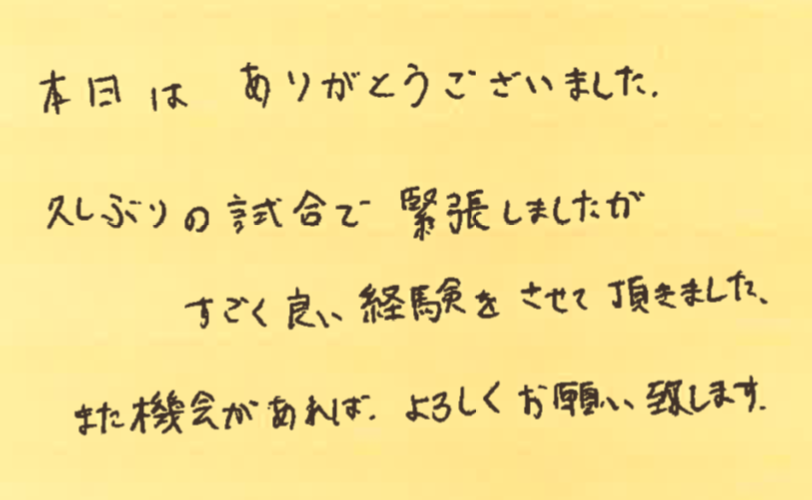 本日は ありがとうございました.
久しぶりの試合で 緊張しましたが
すごく良い経験をさせて頂きました、
また機会があれば. よろしくお願い致します.